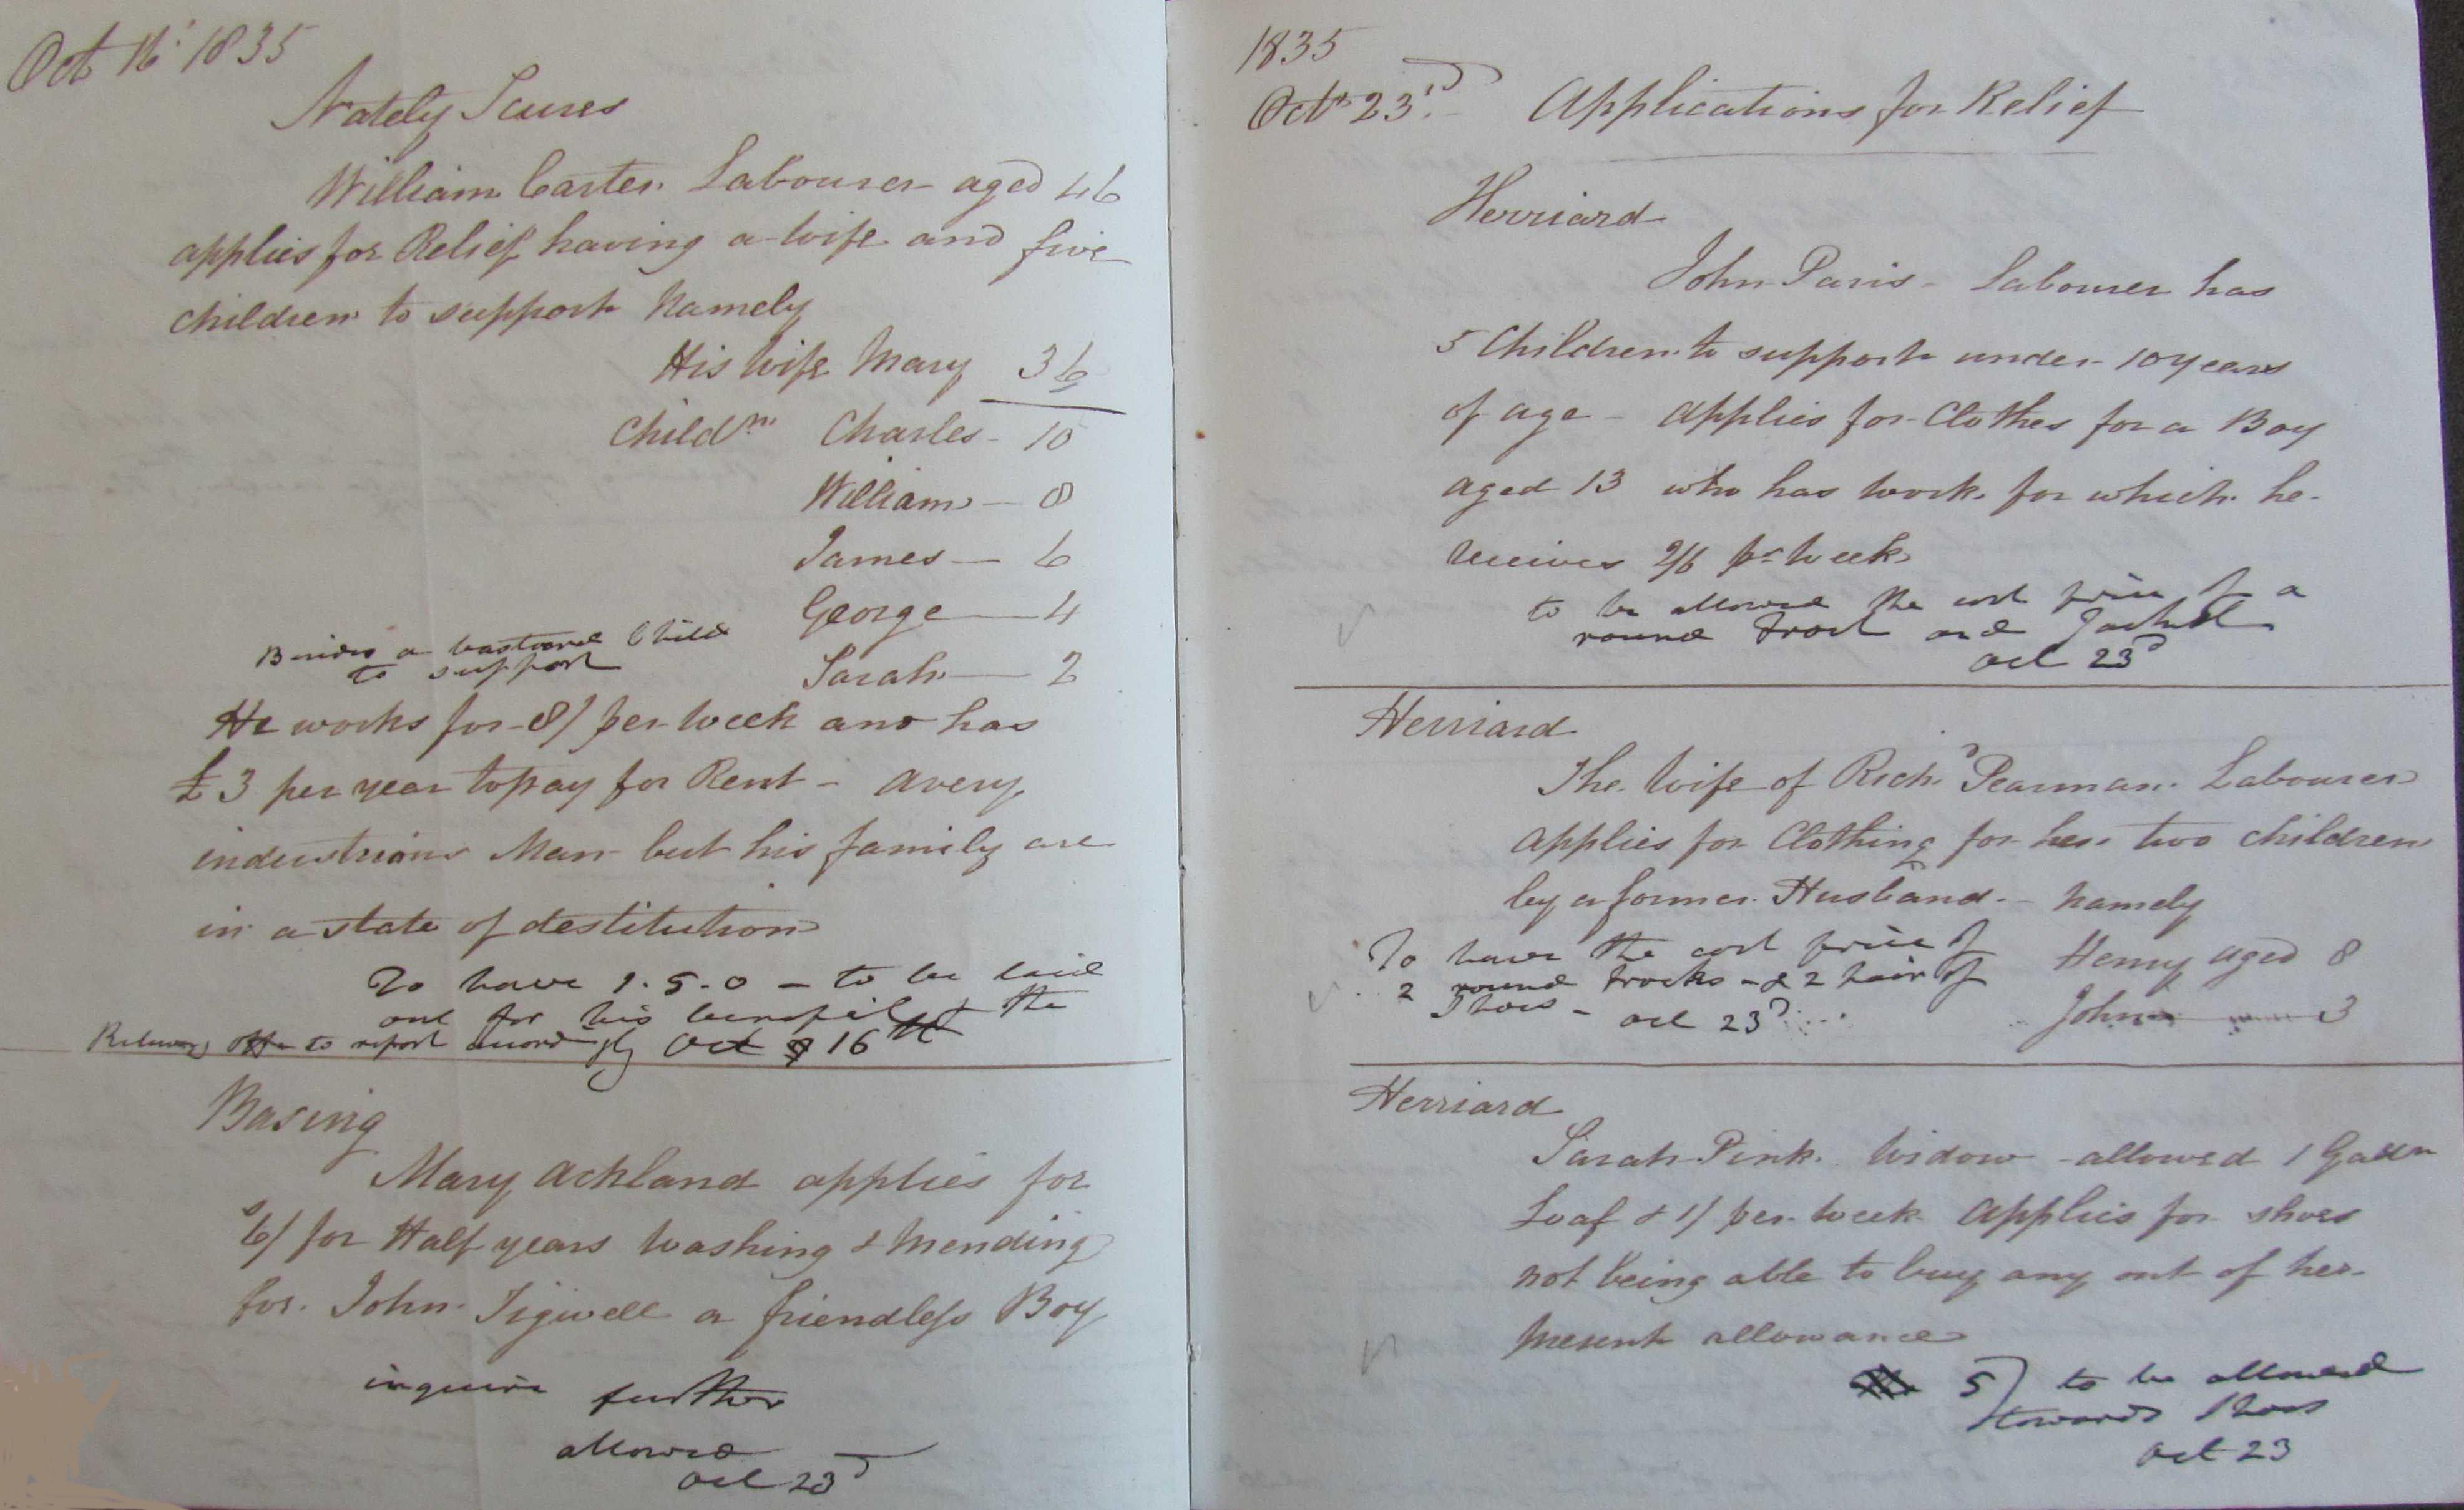 Oct 16 1835
Nately Scures
William Carter Labourer aged 46
applies for Relief having a wife and five
children to support namely
His wife Mary 36
Childrn Charles - 10
William - 8
James - 6
George - 4
Besides a bastard Child
to support
Sarah - 2
He works for 8/ per week and has
£3 per year to pay for Rent - a very
industrious Man but his family are
in a state of destitution
To have 1.5.0 - to be laid
out for his benefit & the
Relieving Offr to report accordingly Oct 16th
Basing
Mary Ackland applies for
6/ for Half years washing & mending
for John Tigwell a friendless Boy
inquire further
allowed
Oct 23d
1835
Octr 23rd Applications for Relief
Herriard
John Paris - Labourer has
5 Children to support under 10 years
of age - applies for Clothes for a Boy
aged 13 who has work for which he
receives 2/6 pr week
to be allowed the cost price of a
round Frock and Jacket
Oct 23d
Herriard
The Wife of Richd Pearman Labourer
applies for Clothing for her two children
by a former Husband - namely
To have the cost price of
2 round frocks - & 2 pair of
Shoes - Oct 23d
Henry aged 8
John 3
Herriard
Sarah Pink Widow - allowed 1 Galln
Loaf & 1/ per week applies for shoes
not being able to buy any out of her
present allowance
5/ to be allowed
towards Shoes
Oct 23